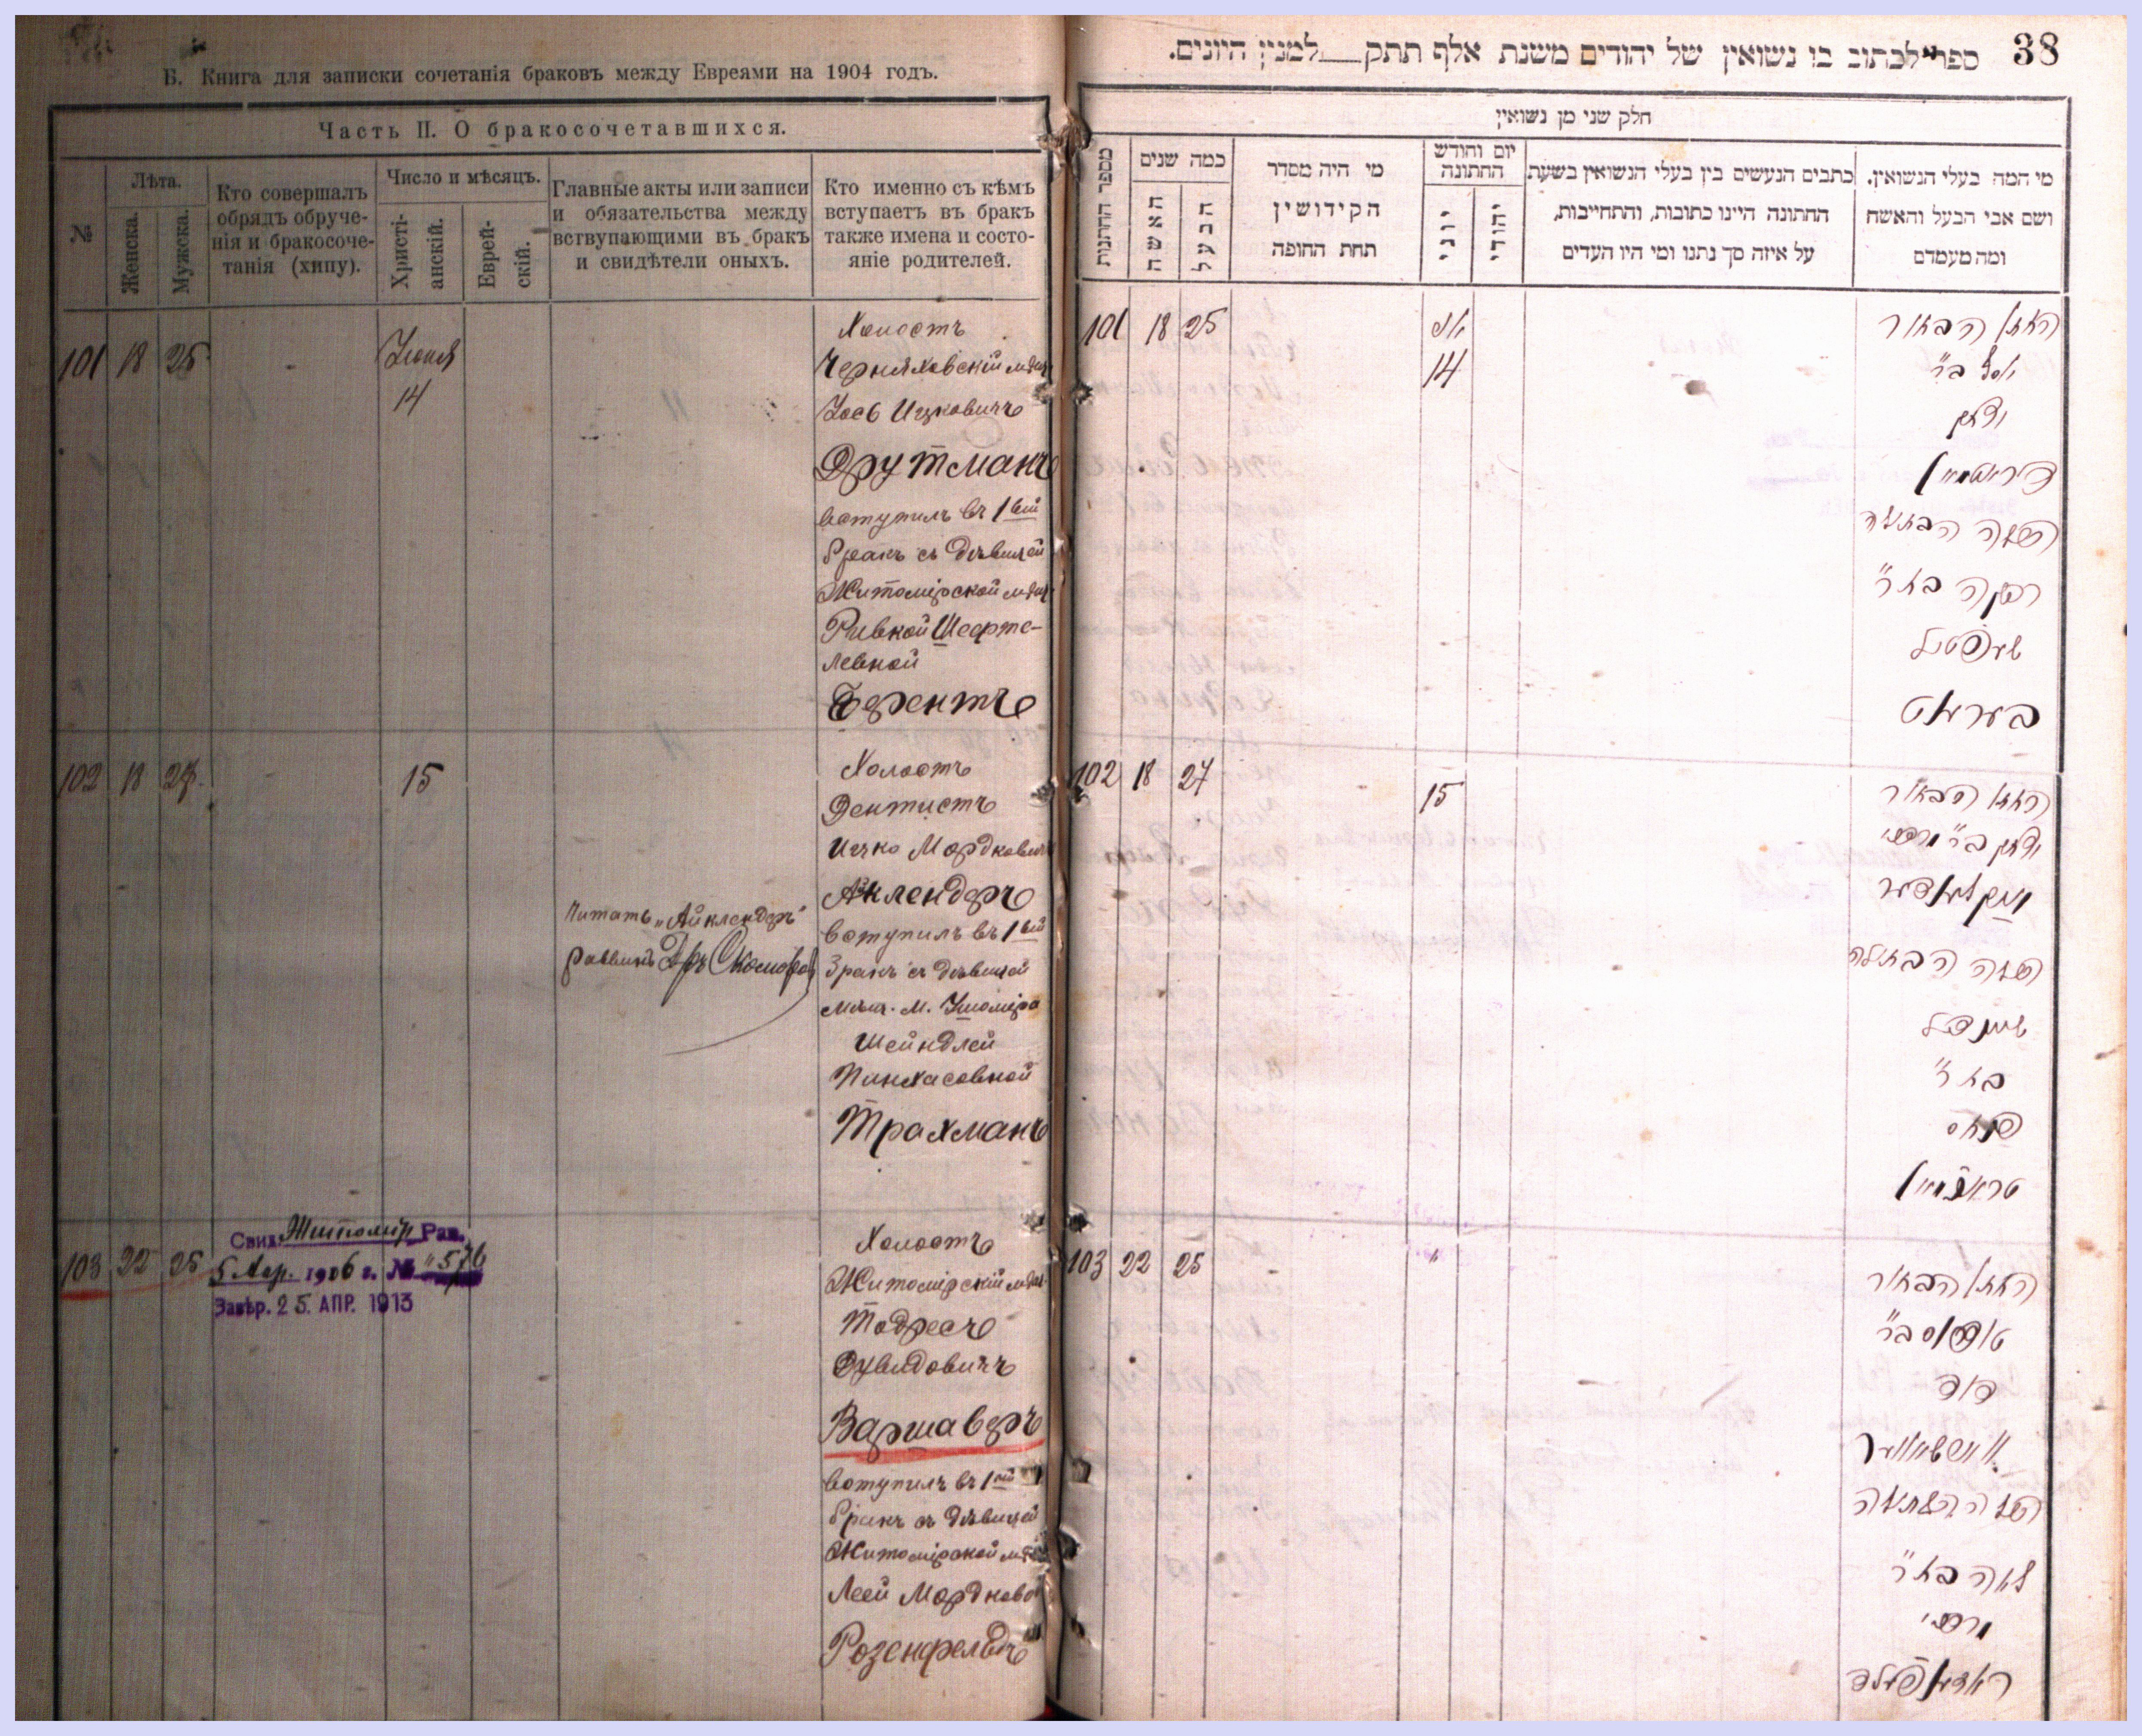 Б. Книга для записки сочетанія браковъ между Евреями на 1904 годъ.
Часть II. О бракосочетавшихся.
№
Лѣта.
Женска.
Мужска.
Кто совершалъ
обрядъ обруче-
нія и бракосоче-
танія (хипу).
Число и мѣсяцъ.
Христі-
анскій.
Еврей-
скій.
Главные акты или записи
и обязательства между
вствупающими въ бракъ
и свидѣтели оныхъ.
Кто именно съ кѣмъ
вступаетъ въ бракъ
также имена и состо-
яніе родителей.
101 18 25
Іюня
14
Холостъ
Черняховскій мѣщ
Іось Ицковичъ
Друтманъ
вступилъ въ 1ый
бракъ съ дѣвицей
Житомірской мѣщ
Ривкой Шефте-
левной
Берентъ
102 18 27
15
Холостъ
Дентистъ
Ицко Мордковичъ
Айклендеръ
вступилъ въ 1ый
бракъ съ дѣвицей
мѣщ. м. Ушоміра
Шейндлей
Пинхасовной
Трахманъ
Читать „Айклендеръ"
раввинъ Др Скоморов
103 22 25
Свид. Житомір. Рав.
5 Апр. 1906 г. № 576
Завѣр. 25. АПР. 1913
Холостъ
Житомірскій мѣщ.
Тодресъ
Дувидовичъ
Варшаверъ
вступилъ въ 1ый
бракъ съ дѣвицей
Житомірской мѣщ
Леей Мордково
Розенфельдъ
38
ספר לכתוב בו נשואין של יהודים משנת אלף תתק__למנין היונים.
חלק שני מן נשואין
מספר החתנות
כמה שנים
האשה
הבעל
מי היה מסדר
הקידושין
תחת החופה
יום וחודש
החתונה
יוני
יהודי
כתבים הנעשים בין בעלי הנשואין בשעת
החתונה היינו כתובות, והתחייבות,
על איזה סך נתנו ומי היו העדים
מי המה בעלי הנשואין.
ושם אבי הבעל והאשה
ומה מעמדם
101 18 25
14
החתן הבחור
יוסף בר״
יצחק
דרוטמאן
עם הבתולה
רבקה בת ר״
שעפטיל
בערענט
102 18 27
15
החתן הבחור
יצחק בר״ מרדכי
אייקלענדער
עם הבתולה
שיינדל
בת ר״
פנחס
טראכמאן
103 22 25
"
החתן הבחור
טודרוס בר״
דוד
ווארשאווער
עם הבתולה
לאה בת ר״
מרדכי
ראזענפעלד